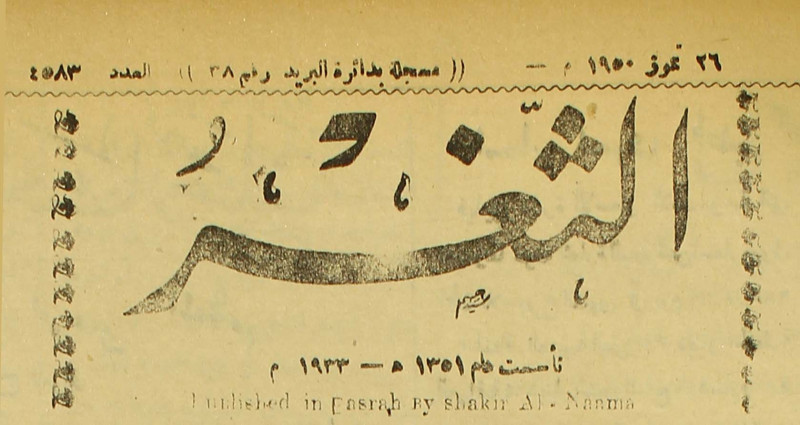 ٢٦ تموز ١٩٥٠ م — (( مسجلة بدائرة البريد رقم ٣٨ )) العدد ٤٥٨٣
الثَّغْرُ
تأسست عام ١٣٥١ ه — ١٩٣٣ م
Published in Basrah By Shakir Al - Naama